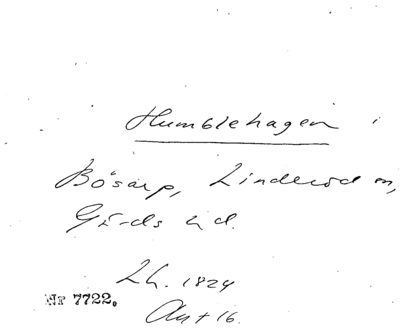 Humblehagen i
Bösarp, Linderöd sn,
Gärds hd.
Lh. 1824
Nr 7722.
Akt 16.